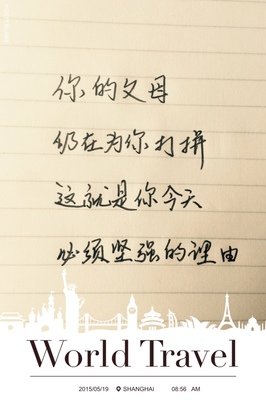 你的父母
仍在为你打拼
这就是你今天
必须坚强的理由
World Travel
2015/05/19 SHANGHAI 08:56 AM